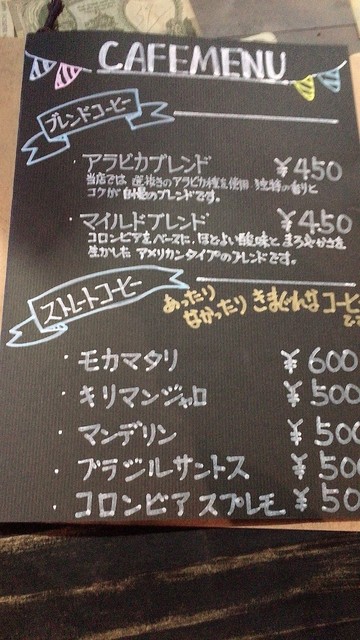 CAFEMENU
ブレンドコーヒー
・アラビカブレンド ¥450
当店では 選抜きのアラビカ種を使用 独特の香りと
コクが自慢のブレンドです。
・マイルドブレンド ¥450
コロンビアをベースに、ほどよい酸味と まろやかさを
生かした アメリカンタイプのブレンドです。
ストレートコーヒー
あったり
なかったり きまぐれなコーヒ
・モカマタリ ¥600
・キリマンジャロ ¥500
・マンデリン ¥500
・ブラジルサントス ¥500
・コロンビアスプレモ ¥50